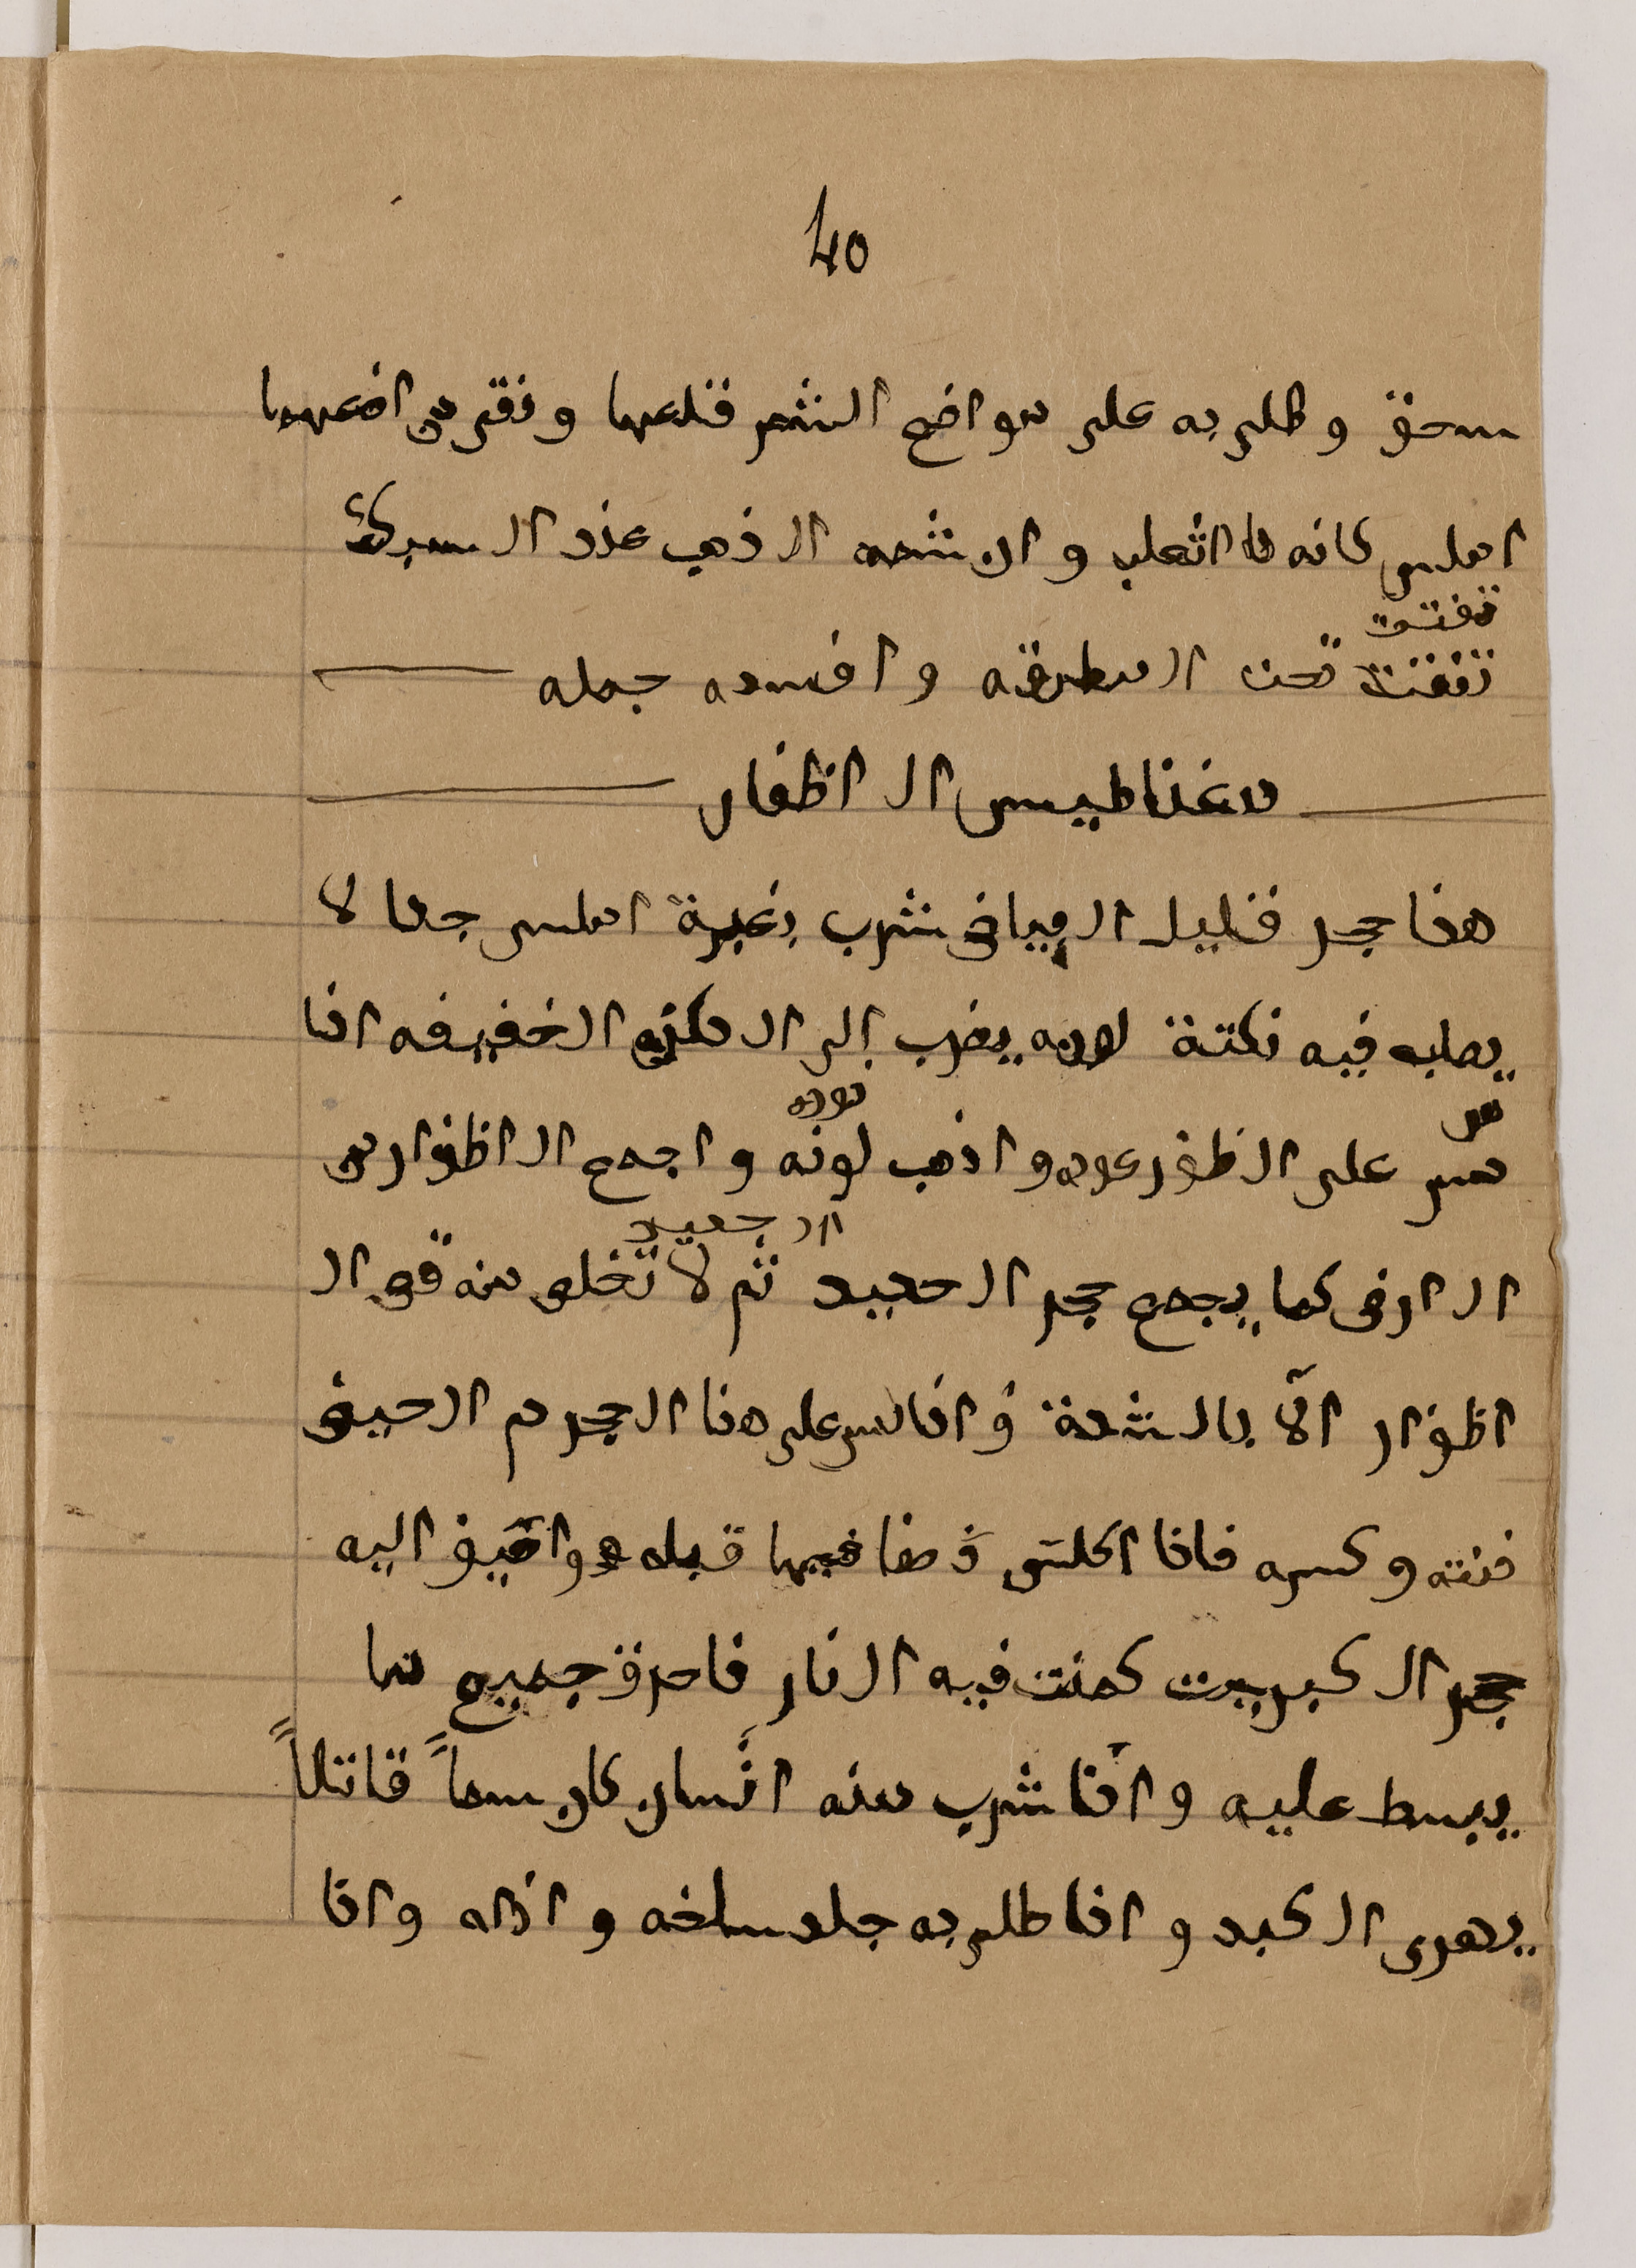 40
سحق وطلى به على مواضع الشعر قلعها وبقى مواضعها
املس كانه داء الثعلب وان شمه الذهب عند السبك
تفتت
تفتت تحت المطرقه وافسده جمله
مغناطيس الاظفار
هذا حجر قليل البياض مشرب بغبرة املس جدا لا
يصاب فيه نكتة لونه يضرب الى الدكنه الخفيفه اذا
مر
مر على الظفر عوده واذهب لونه واجمع الاظفار من
الارض كما يجمع حجر الحديد ثم لا تخلو منه قوى ال
اظفار الا بالشدة واذا مر على هذا الحجر دم الحيض
فتته وكسره فاذا قبله واضيف اليه
حجر الكبريت كمنت فيه النار فاحرق جميع ما
يبسط عليه واذا شرب منه انسان كان سماً قاتلاً
يهرى الكبد واذا طلى به جلد سلخه واذا